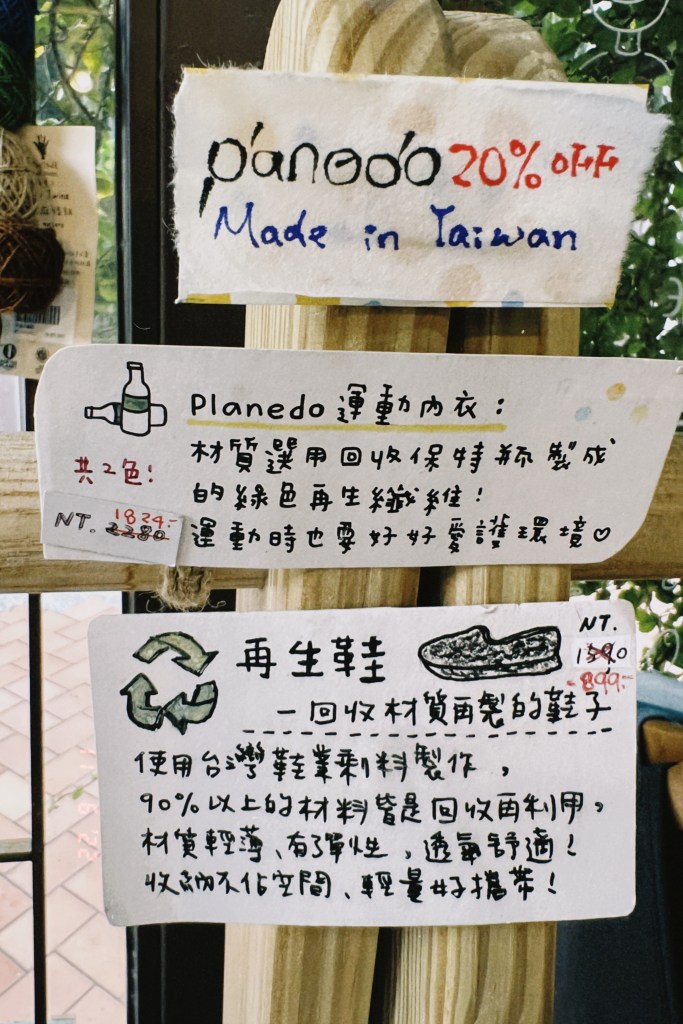 planedo 20% OFF
Made in Taiwan
Planedo 運動內衣：
材質選用回收保特瓶製成
的綠色再生纖維！
運動時也要好好愛護環境♡
共2色！
NT. 1824.-
2280
再生鞋
NT.
1390
-899.-
－回收材質再製的鞋子
使用台灣鞋業剩料製作，
90%以上的材料皆是回收再利用。
材質輕薄、有彈性，透氣舒適！
收納不佔空間、輕量好攜帶！